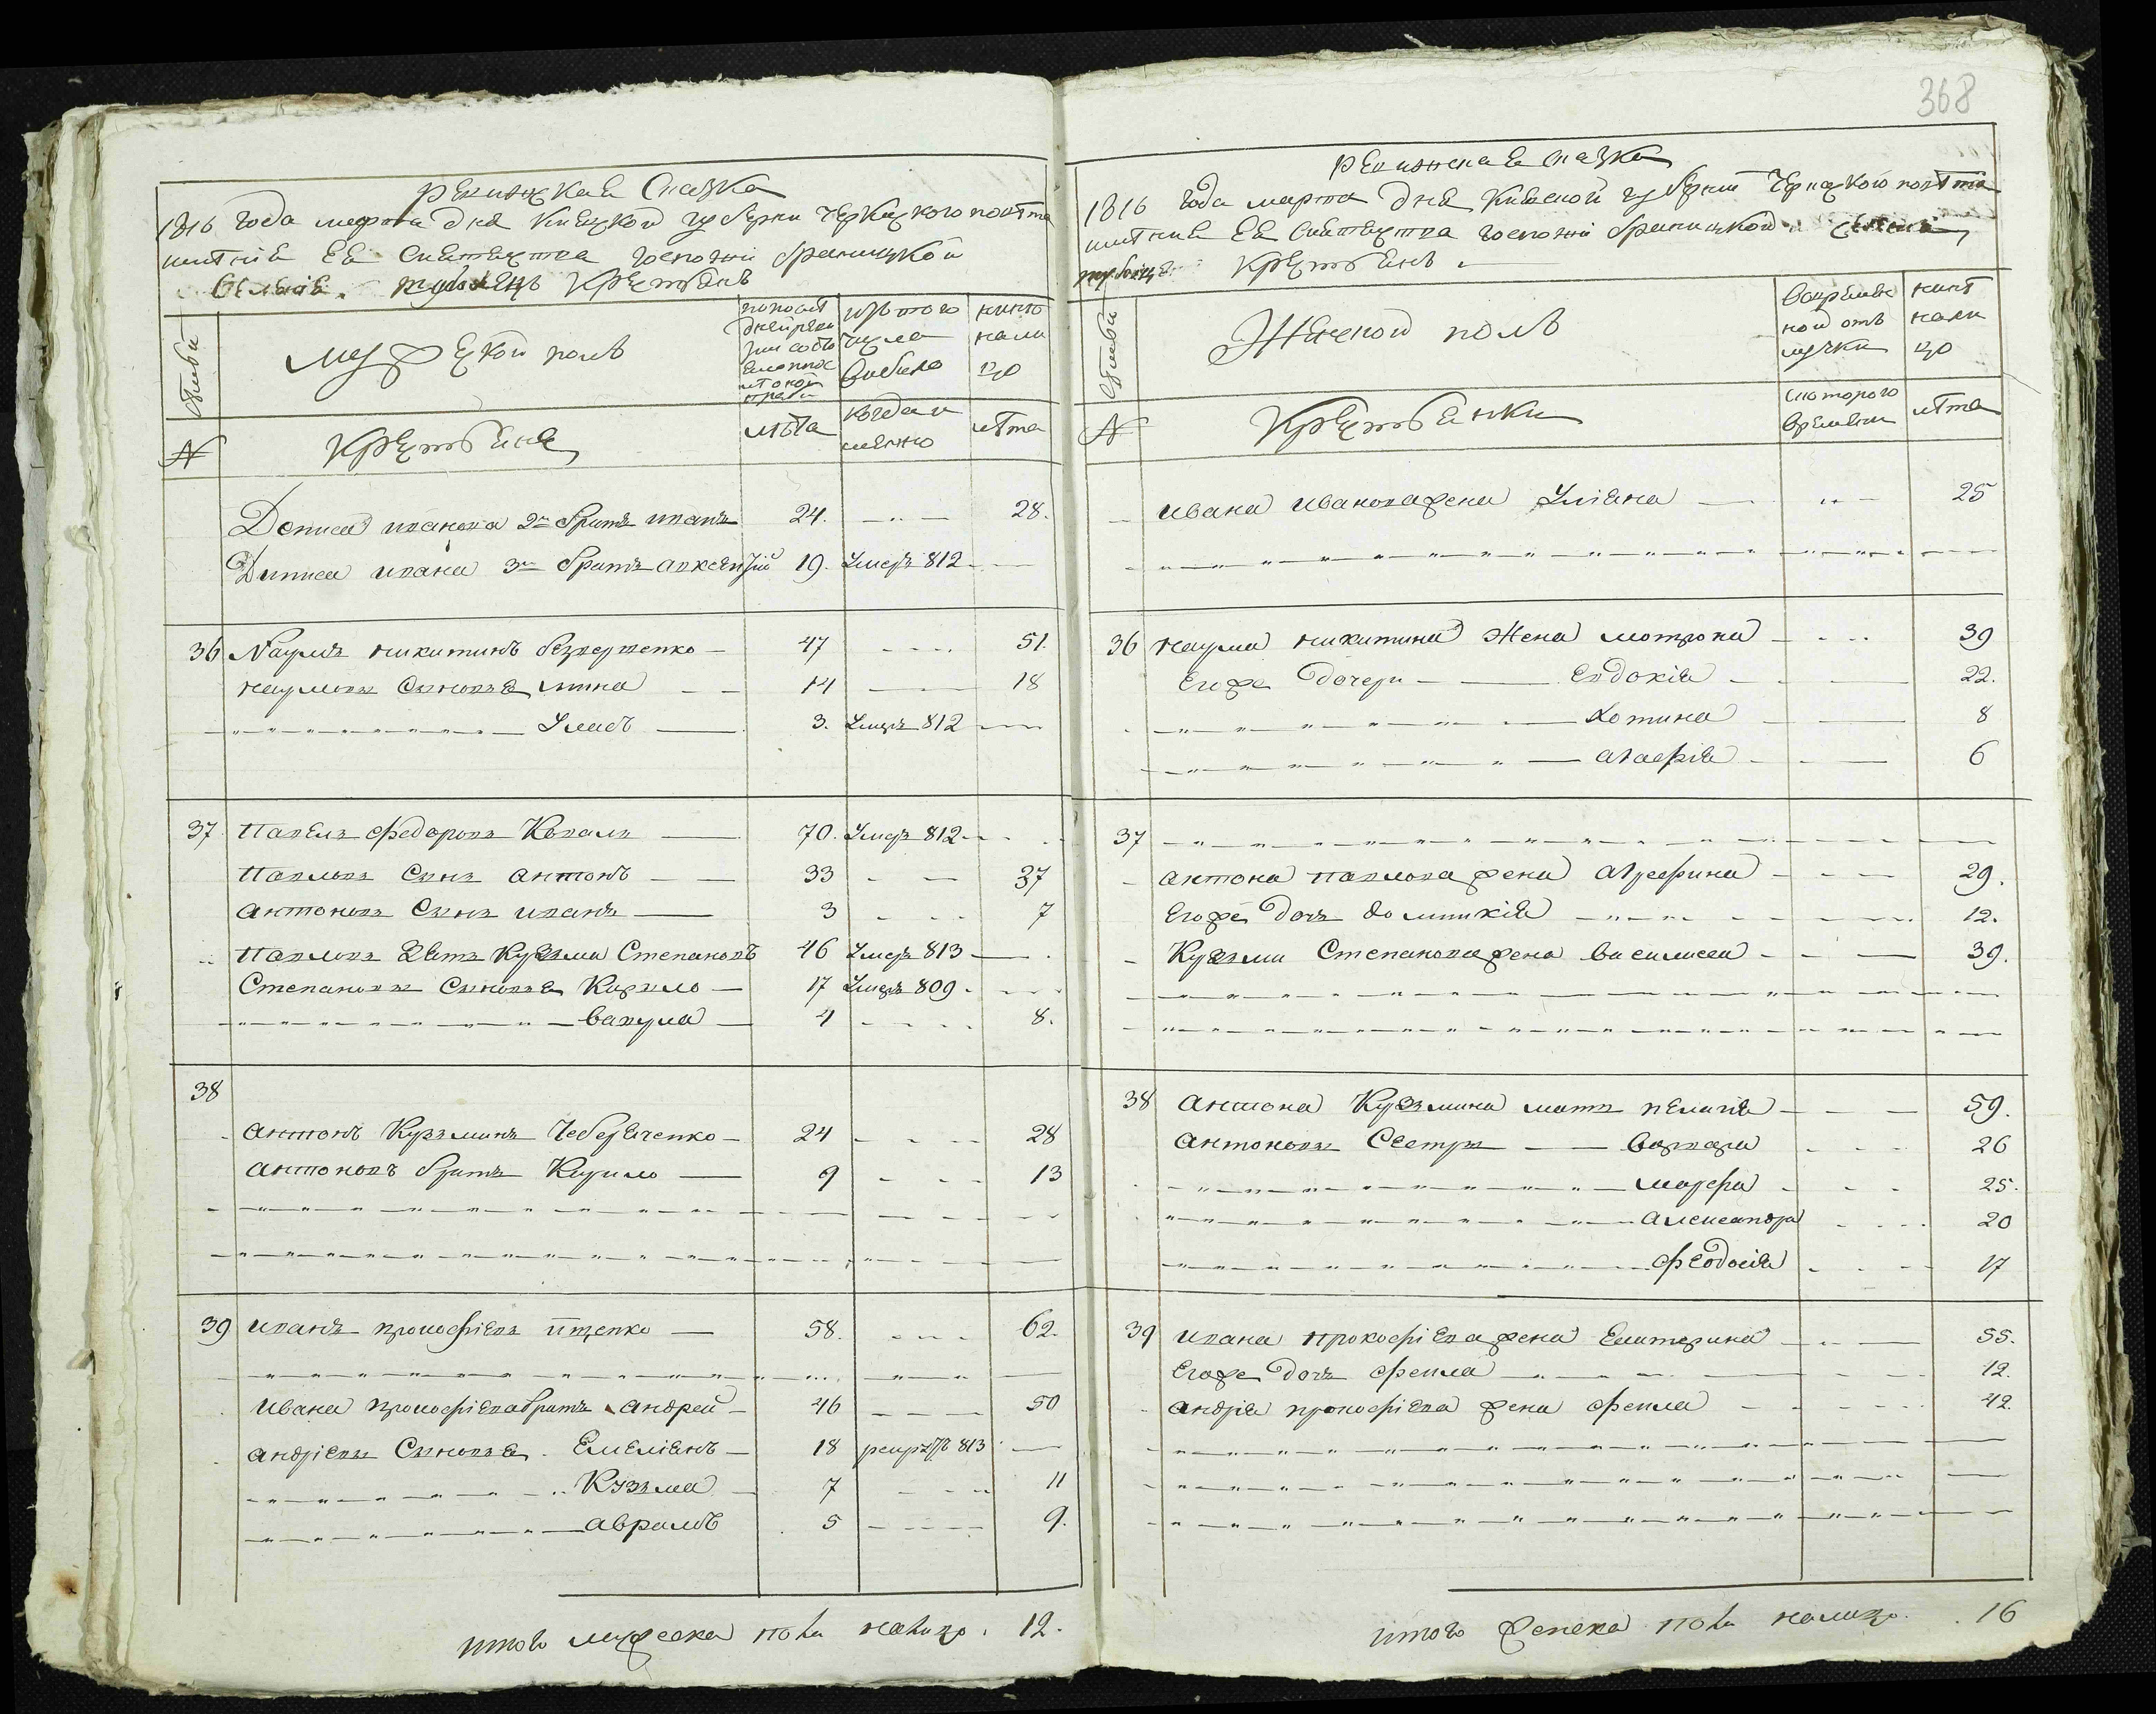 368
Ревижская Сказка
1816 года марта дня Киевской губернии Черкаского повѣта
имѣния Ея Сиятельства госпожи Браницкой
селения Крестьянъ
Мужеской полъ
изъ того числа выбыло
ныне на лицо
№
Крестьяне
лѣта
когда именно
лѣта
Дениса иванова 2й братъ иванъ 24. 28.
Дениса ивана 3й братъ авксентий 19. Умеръ 812
36 Наумъ никитинъ безверхенко 47 51.
наумовы Сыновья мина 14 18
3. Умеръ 812
37 Павелъ федоровъ Коваль 70. Умеръ 812
Павловъ Сынъ антонъ 33 37
антоновъ Сынъ иванъ 3 7
Павловъ Зять Кузьма Степановъ 46 Умеръ 813
Степановы Сыновья Кирило 17 Умеръ 809
вавула 4 8.
38
антонъ Кузьминъ 24 28
антоновъ братъ Кирило 9 13
39 иванъ прокофіевъ 58. 62.
ивана прокофіева братъ андрей 46 50
андріевы Сыновья Емеліянъ 18 рекрутъ 813
Кузьма 7 11
аврамъ 5 9.
итого мужеска пола налицо. 12.
Ревижская Сказка
1816 года марта дня Киевской губернии Черкаского повѣта
имѣния Ея Сиятельства госпожи Браницкой
Крестьянъ
Женской полъ
во временной отлучки
ныне на лицо
№
Крестьянки
с которого времени
лѣта
ивана иванова жена Уліяна 25
36 наума никитина жена мотрона 39
Егоже дочери Евдокія 22.
хотина 8
агафія 6
37
антона павлова жена 29.
Егоже дочь домникія 12.
Кузьми Степанова жена василиса 39.
38 антона Кузьмина мать пелагія 59.
антоновы Сестры варвара 26
марфа 25.
александра 20
феодосія 17
39 ивана прокофіева жена Екатерина 55.
Егоже дочь фекла 12.
андрія прокофіева жена фекла 42.
итого женска пола налицо. 16